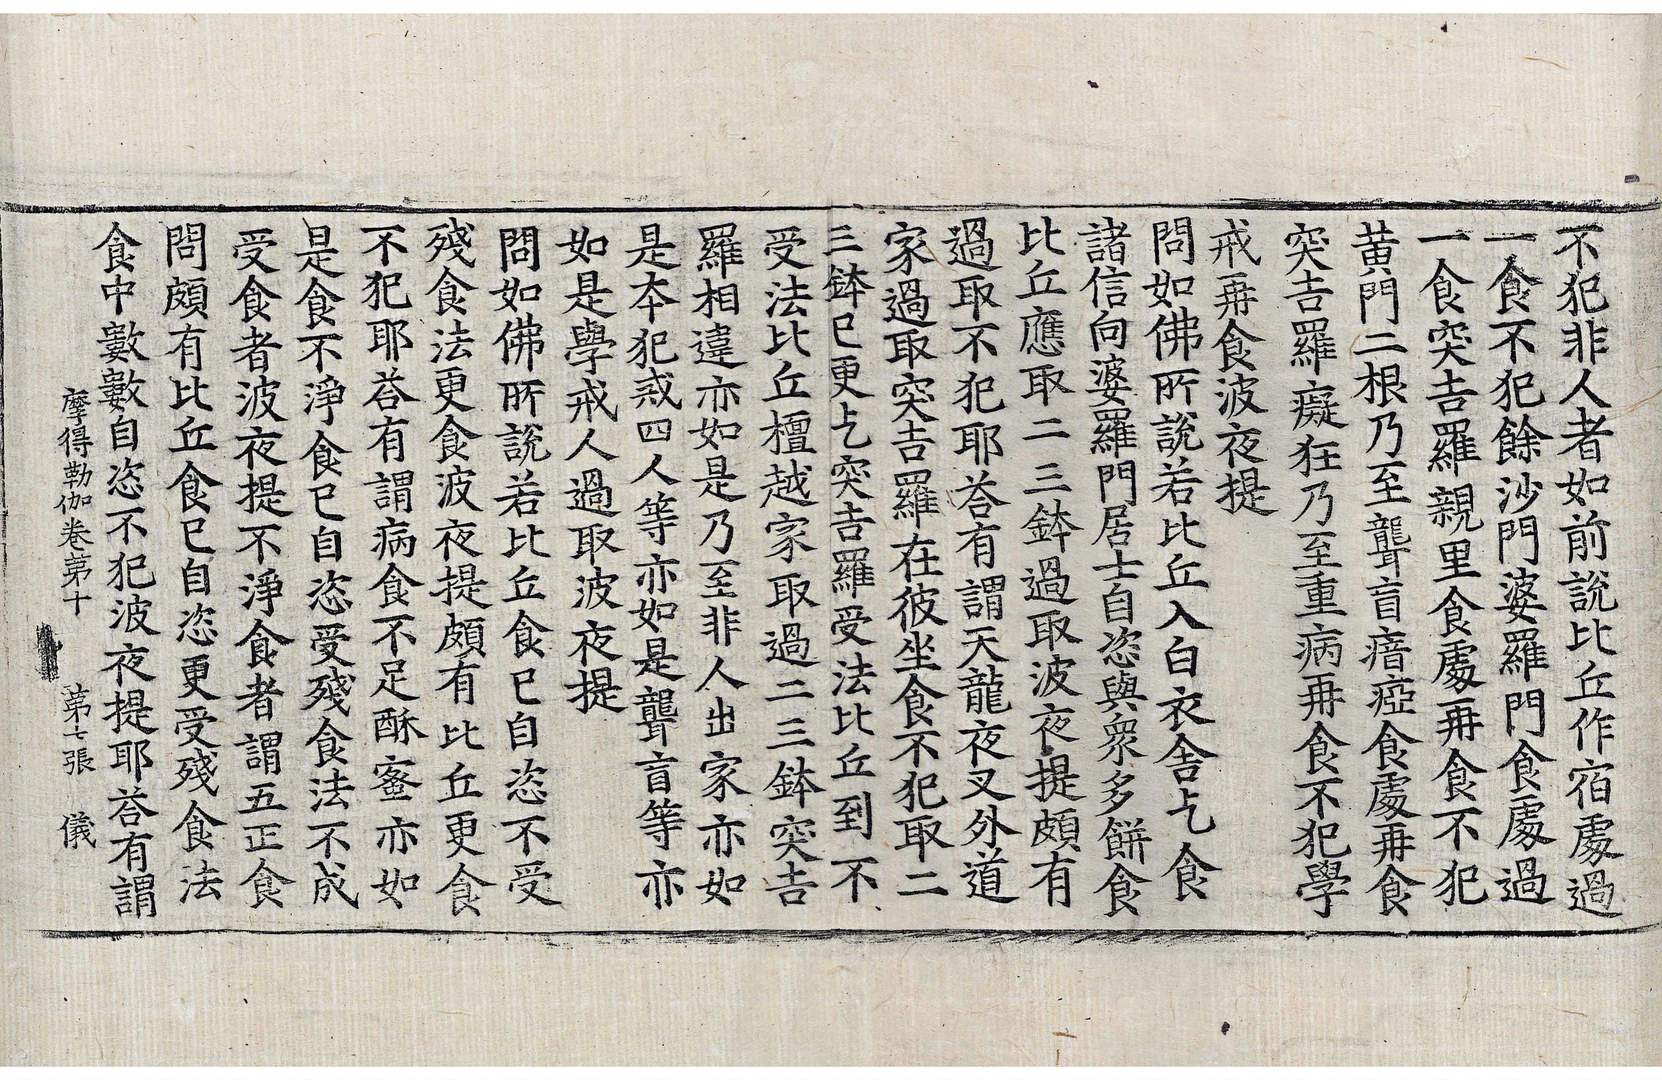 不犯非人者如前說比丘作宿處過
一食不犯餘沙門婆羅門食處過
一食突吉羅親里食處再食不犯
黃門二根乃至聾盲瘖瘂食處再食
突吉羅癡狂乃至重病再食不犯學
戒再食波夜提
問如佛所說若比丘入白衣舍乞食
諸信向婆羅門居士自恣與衆多餅食
比丘應取二三鉢過取波夜提頗有
過取不犯耶荅有謂天龍夜叉外道
家過取突吉羅在彼坐食不犯取二
三鉢已更乞突吉羅受法比丘到不
受法比丘檀越家取過二三鉢突吉
羅相違亦如是乃至非人出家亦如
是夲犯戒四人等亦如是聾盲等亦
如是學戒人過取波夜提
問如佛所說若比丘食已自恣不受
殘食法更食波夜提頗有比丘更食
不犯耶荅有謂病食不足酥蜜亦如
是食不淨食已自恣受殘食法不成
受食者波夜提不淨食者謂五正食
問頗有比丘食已自恣更受殘食法
食中數數自恣不犯波夜提耶荅有謂
摩得勒伽卷第十 第七張 儀